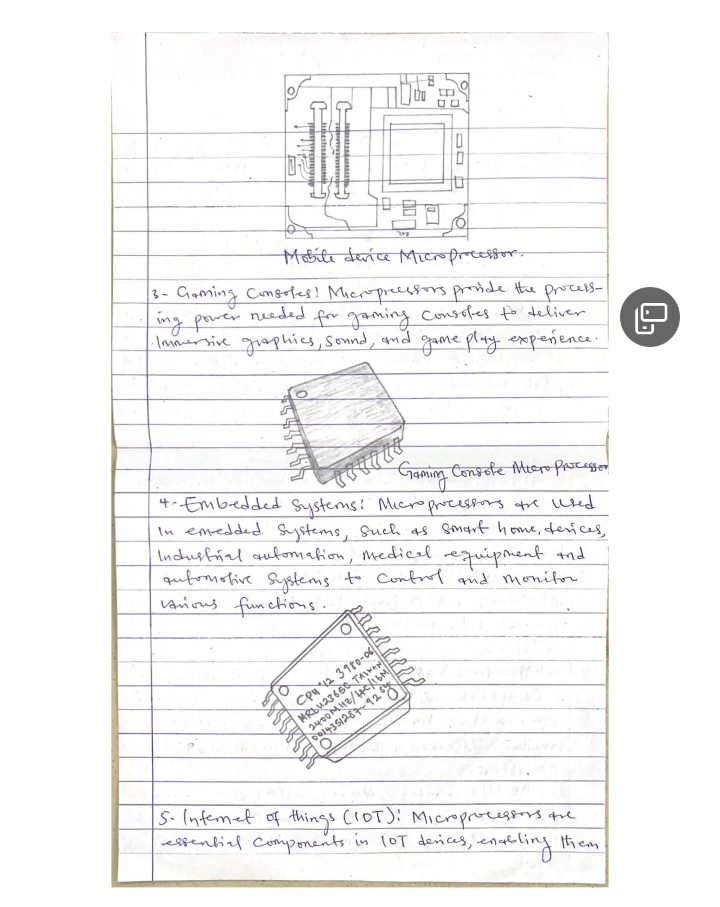 Mobile device Microprocessor.
3- Gaming Consoles: Microprocessors provide the process-
ing power needed for gaming consoles to deliver
Immersive graphics, sound, and game play experience.
Gaming Console Microprocessor
4- Embedded Systems: Microprocessors are used
In emedded Systems, Such as Smart home, devices,
Industrial automation, medical equipment and
automotive Systems to Control and monitor
various functions.
CPU '12 3980-06
TAIWAN
2400MHZ/
5- Internet of things (IOT): Microprocessors are
essential Components in IOT devices, enabling them